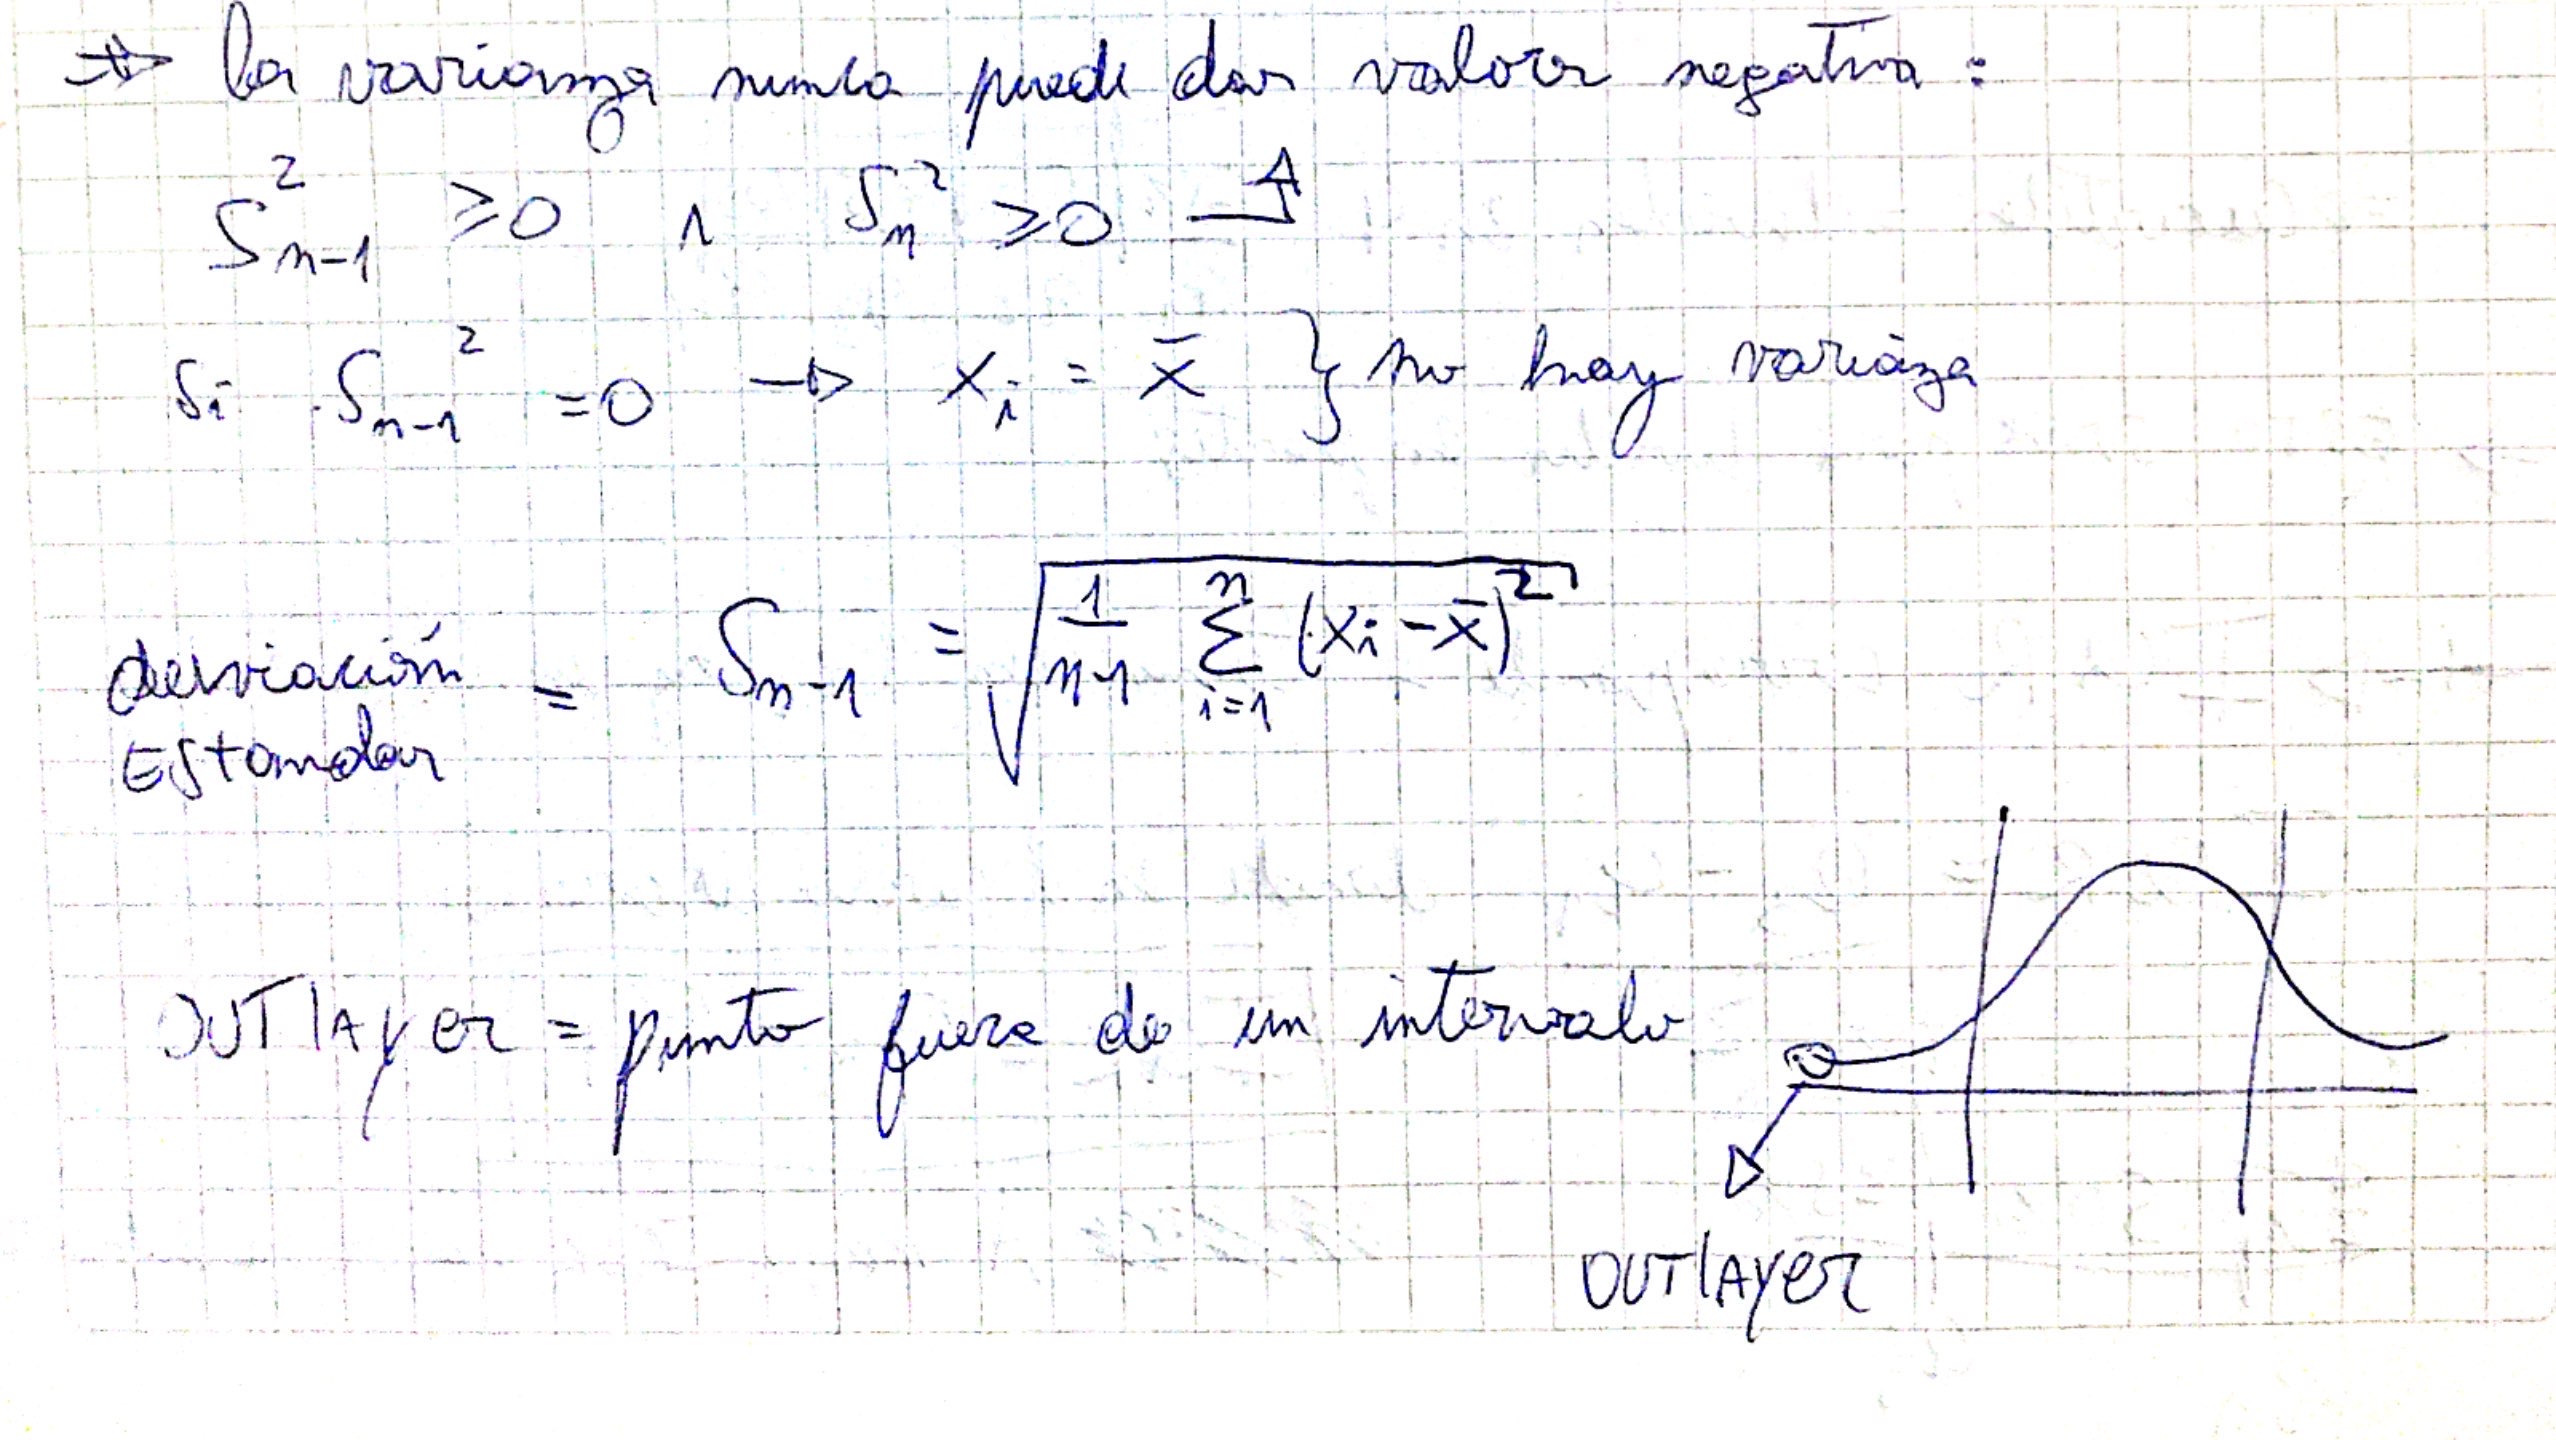 → la varianza nunca puede dar valore negativa :
S²ₙ₋₁ ≥0 ∧ Sₙ² ≥0
Si Sₙ₋₁² =0 → xᵢ = x̄ } no hay variáza
desviación = Sₙ₋₁ = √( 1/(n-1) Σᵢ₌₁ⁿ (xᵢ - x̄)² )
Estandar
OUTlAyer = punto fuera de un intervalo
OUTlAyer